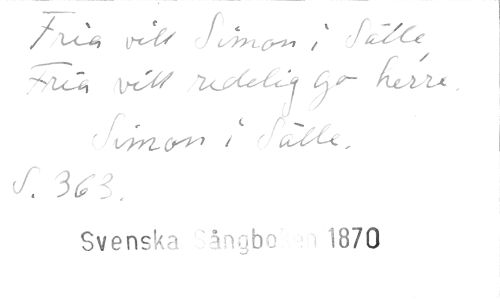 Fria vill Simon i Sälle,
Fria vill redelig go herre.
Simon i Sälle.
S. 363.
Svenska Sångboken 1870